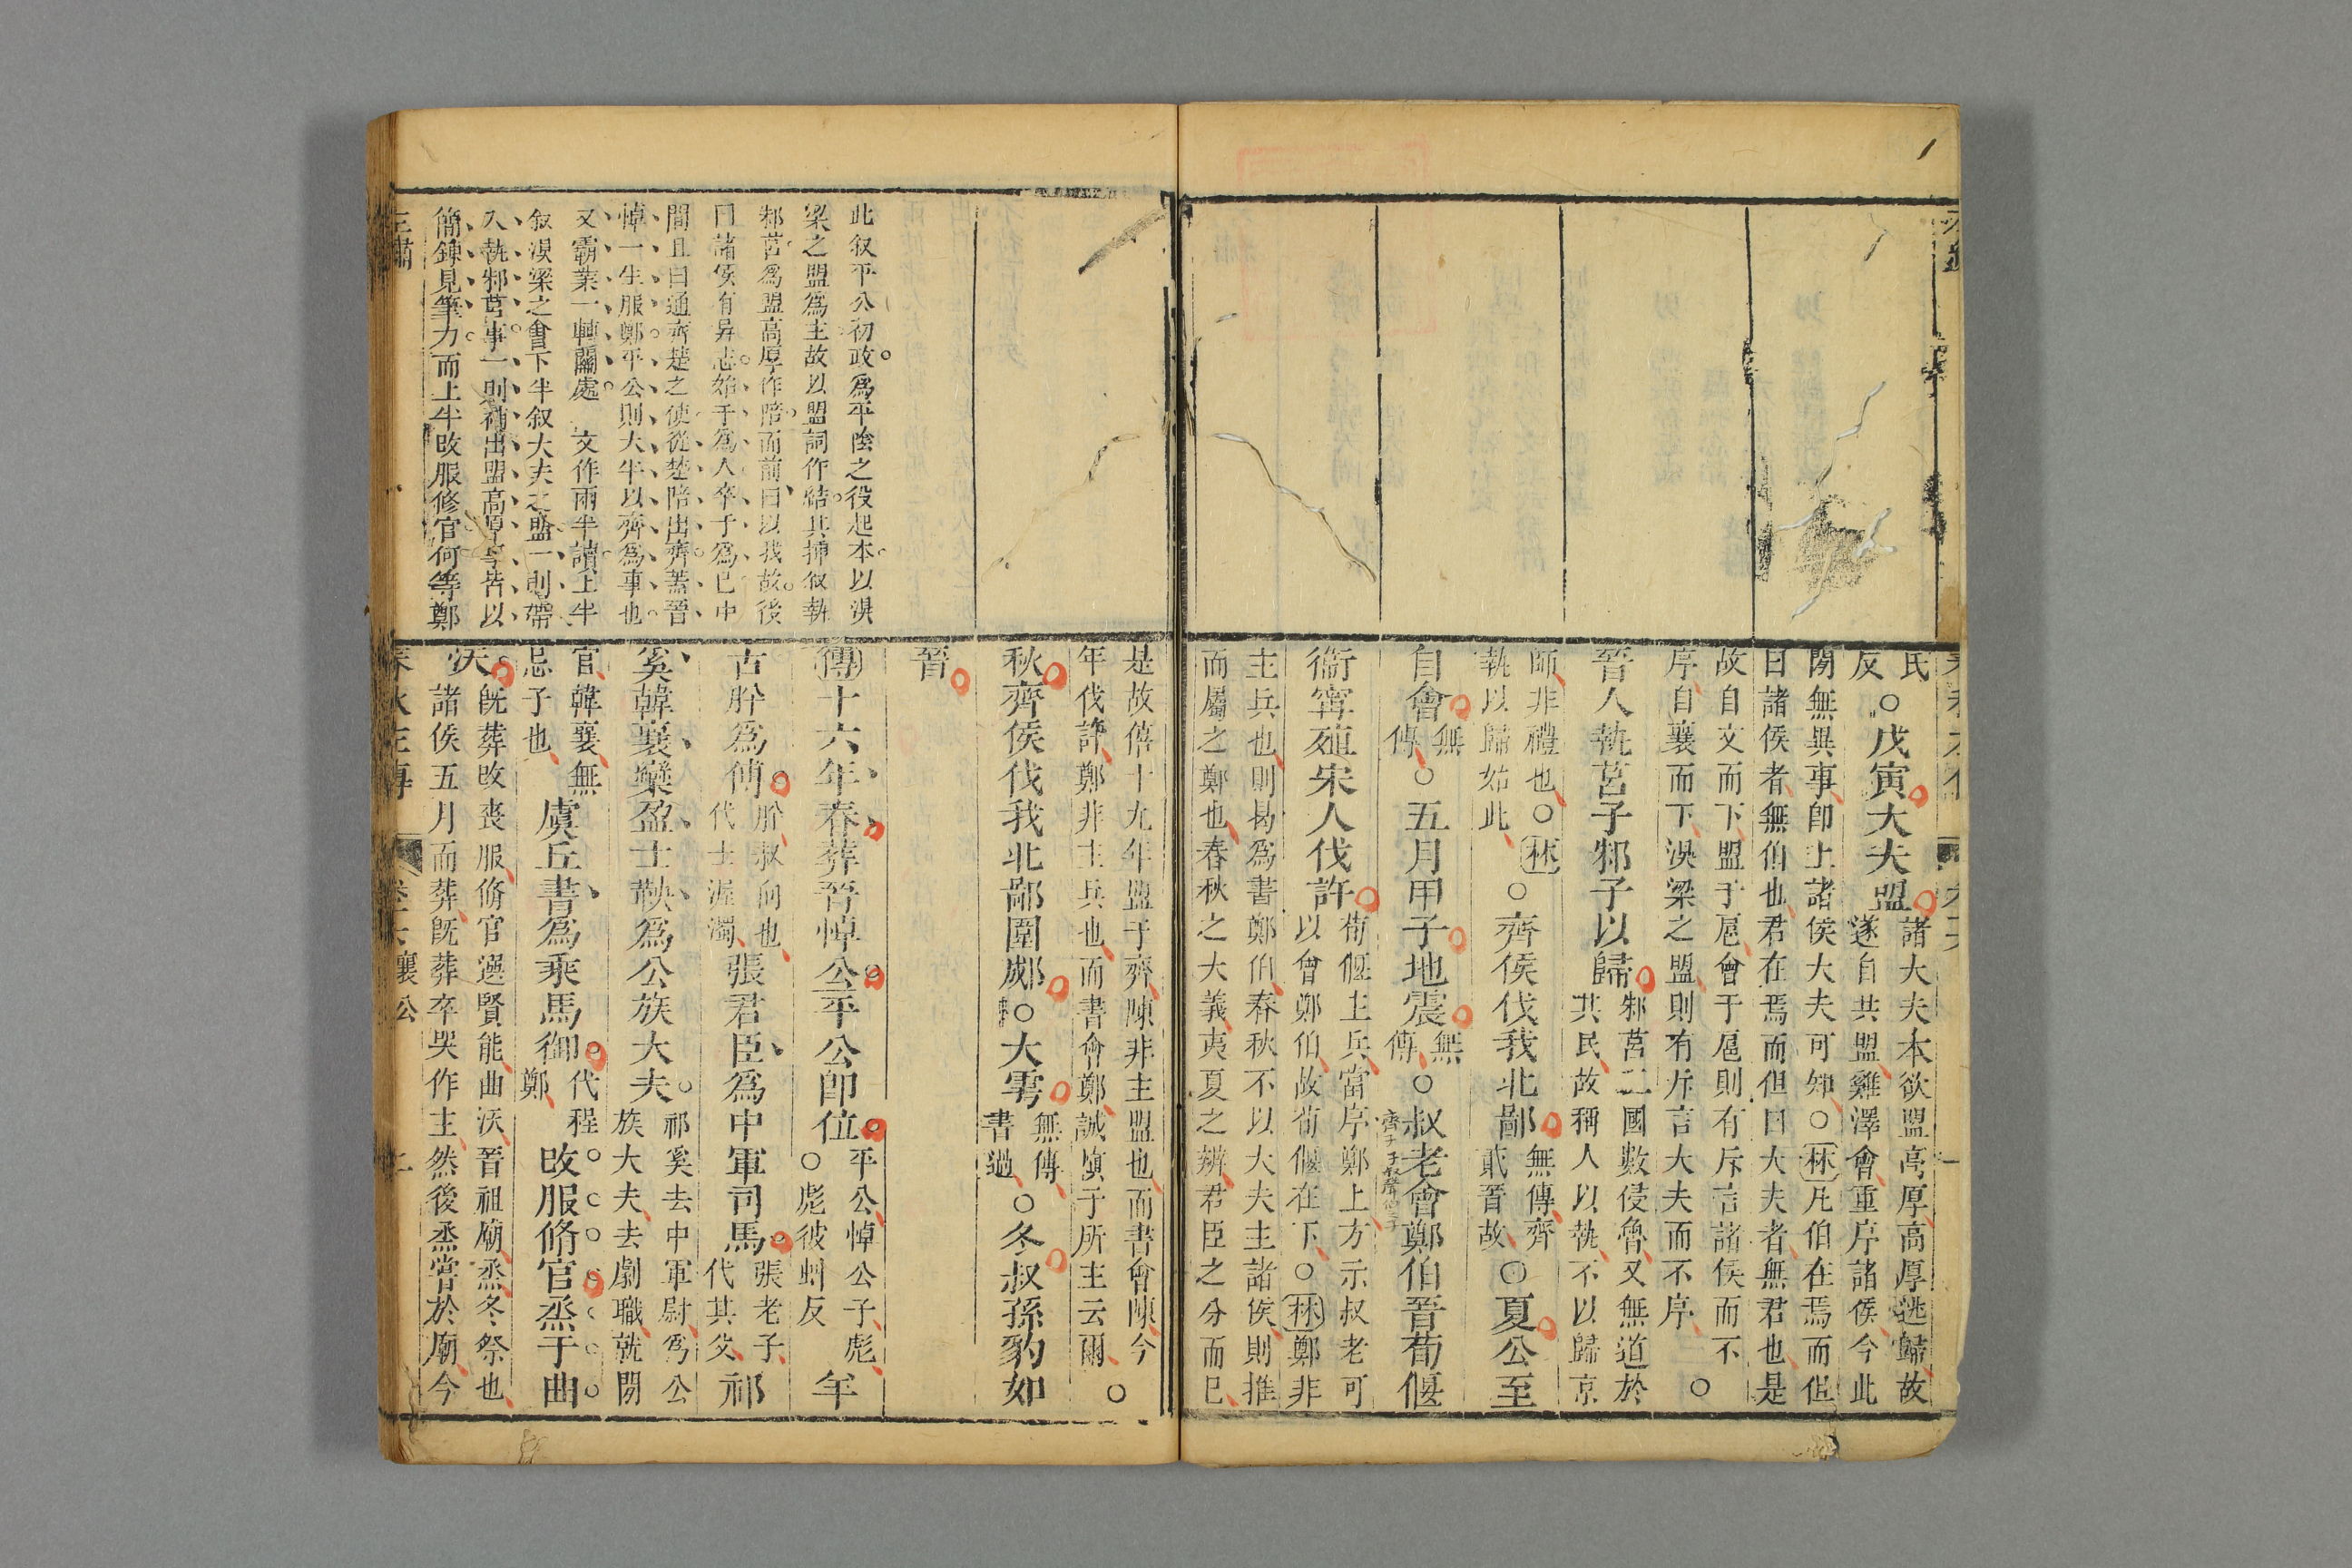 氏
反
○戊寅大夫盟
諸大夫本欲盟高厚高厚逃歸故
遂自共盟雞澤會重序諸侯今此
閒無異事即上諸侯大夫可知○林凡伯在焉而但
曰諸侯者無伯也君在焉而但曰大夫者無君也是
故自文而下盟于扈會于扈則有斥言諸侯而不
序自襄而下湨梁之盟則有斥言大夫而不序○
晉人執莒子邾子以歸
邾莒二國數侵魯又無道於
其民故稱人以執不以歸京
師非禮也○林
執以歸始此
○齊侯伐我北鄙
無傳齊
貳晉故
○夏公至
自會
無
傳
○五月甲子地震
無
傳
○叔老會鄭伯晉荀偃
衞甯殖宋人伐許
荀偃主兵當序鄭上方示叔老可
以會鄭伯故荀偃在下○林鄭非
主兵也則曷爲書鄭伯春秋不以大夫主諸侯則推
而屬之鄭也春秋之大義夷夏之辨君臣之分而已
是故僖十九年盟于齊陳非主盟也而書會陳今
年伐許鄭非主兵也而書會鄭誠嫌于所主云爾○
秋齊侯伐我北鄙圍郕○大雩
無傳
書過
○冬叔孫豹如
晉
此叙平公初政爲平陰之役起本以湨
梁之盟爲主故以盟詞作結其揷叙執
邾莒爲盟高厚作陪而前曰以我故後
曰諸侯有异志始于爲人卒于爲已中
間且曰通齊楚之使從楚陪出齊蓋晉
悼一生服鄭平公則大半以齊爲事也
又霸業一轉關處 文作兩半讀上半
叙湨梁之會下半叙大夫之盟一則帶
入執邾莒事一則補出盟高厚事皆以
簡鍊見筆力而上半改服修官何等鄭
傳十六年春葬晉悼公平公即位
平公悼公子彪
○彪彼虯反
羊
舌肸爲傅
肸叔向也
代士渥濁
張君臣爲中軍司馬
張老子
代其父
祁
奚韓襄欒盈士鞅爲公族大夫
祁奚去中軍尉爲公
族大夫去劇職就閒
官韓襄無
忌子也
虞丘書爲乘馬御
代程
鄭
改服脩官烝于曲
沃
既葬改喪服脩官選賢能曲沃晉祖廟烝冬祭也
諸侯五月而葬既葬卒哭作主然後烝嘗於廟今